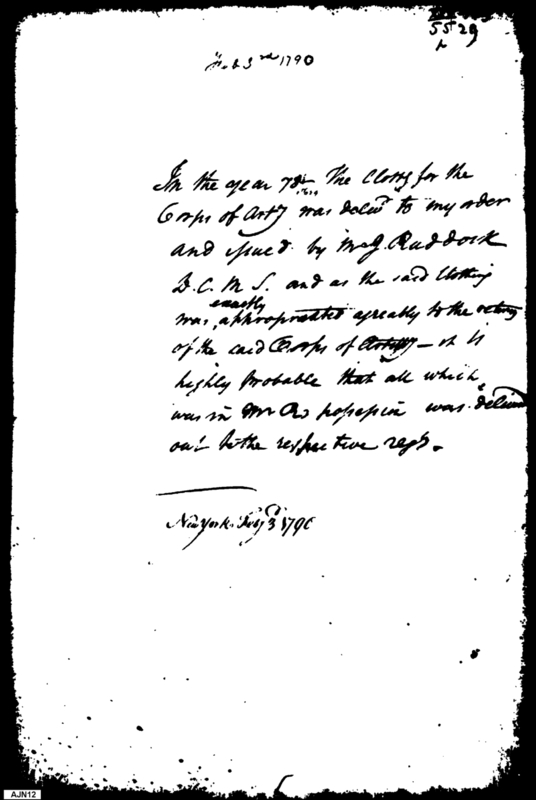 5529
Feb 3rd 1790
In the year 78 the Clothg for the
Corps of Arty was delivd to my order
and issued by Mr J. Ruddock
D. C. M S. and as the said Clothing
was exactly appropriated agreably to the
of the said Corps of Artry — it is
highly probable that all which
was in Mr Rs possession was deliverd
out to the respective regts.
New York Feby 3d 1790
AJN12